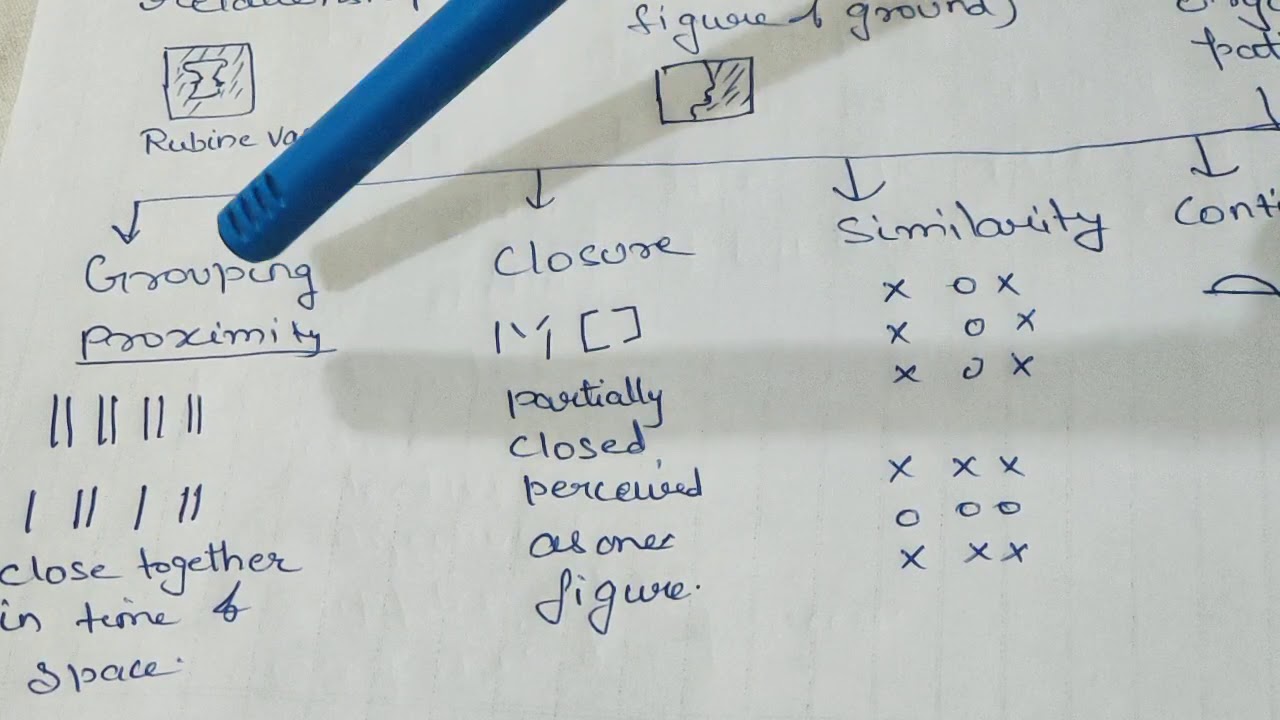 figure & ground)
Rubine
Grouping
proximity
close together
in time &
space.
Closure
partially
closed,
perceived
as one
figure.
Similarity
x o x
x o x
x o x
x x x
o o o
x x x